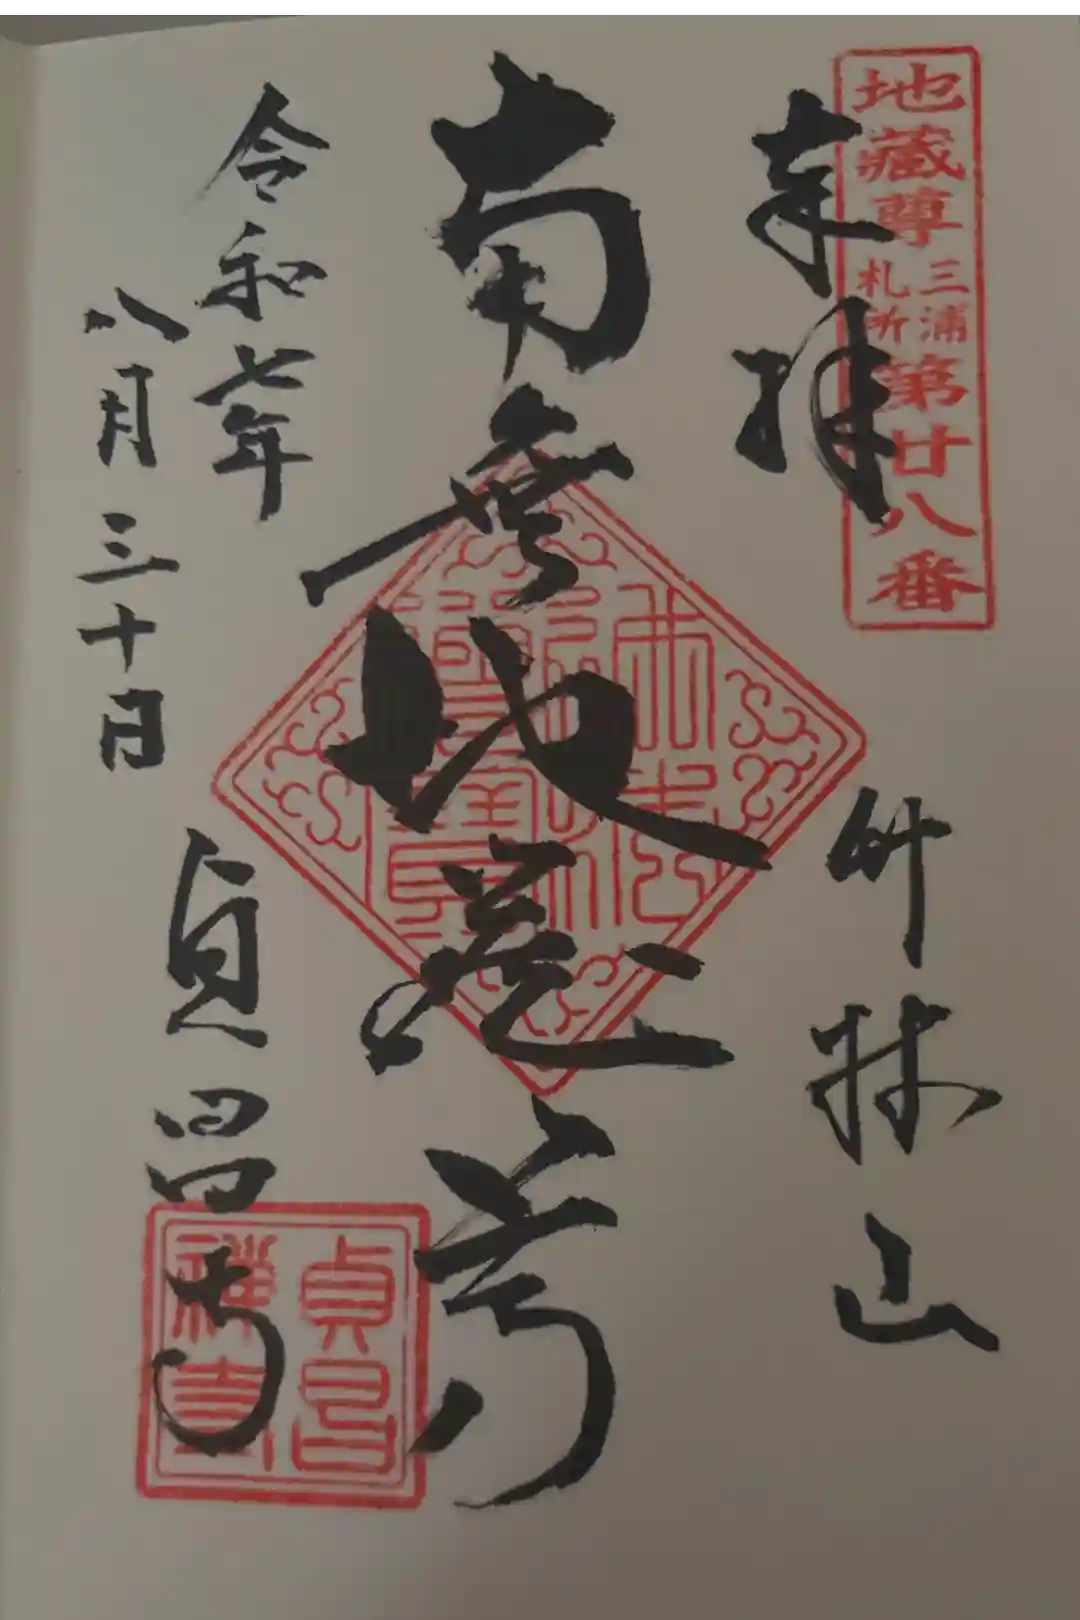 地藏尊
三浦
札所
第廿八番
奉拝
竹林山
南無地蔵尊
佛法
僧寶
令和七年
八月三十日
貞昌寺
貞昌
禪寺